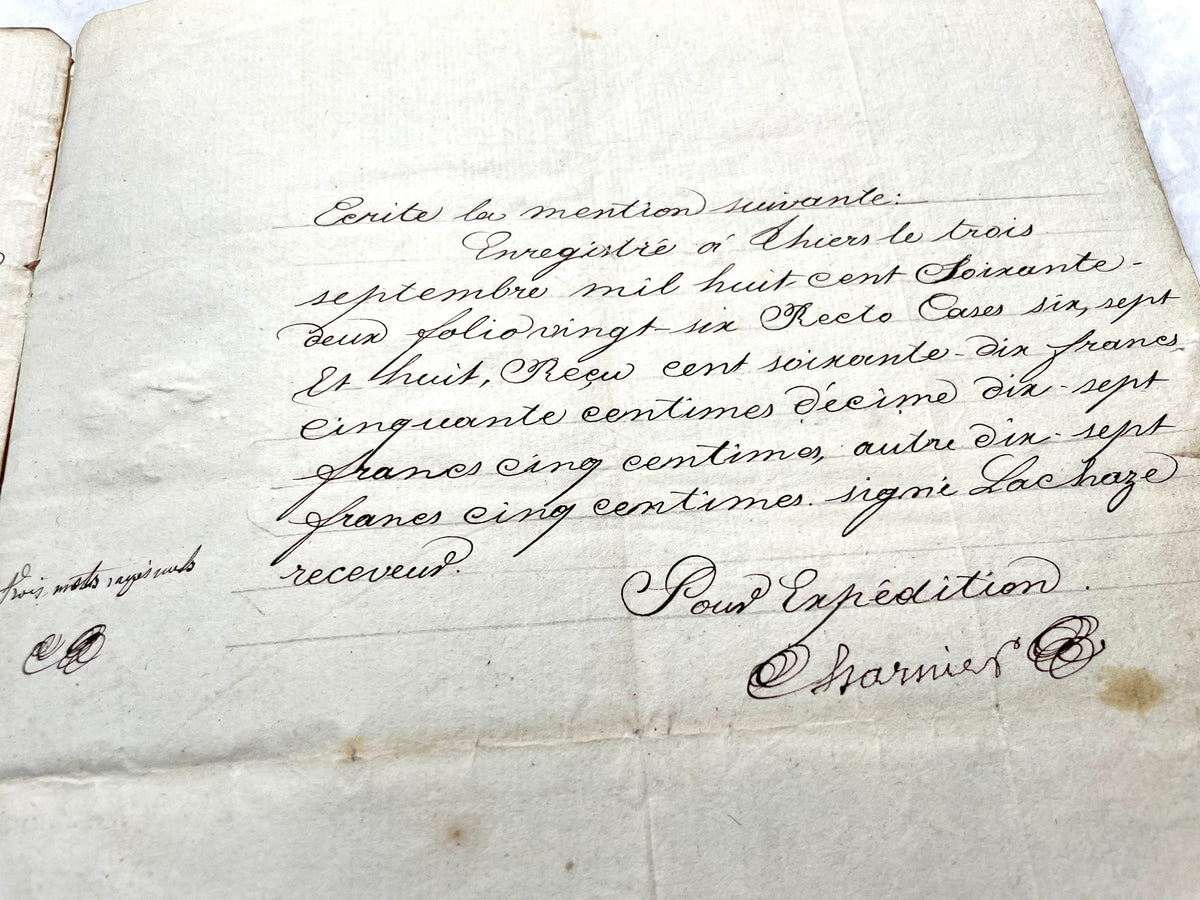 Ecrite la mention suivante:
Enregistré à Thiers le trois
septembre mil huit cent Soixante-
deux folio vingt-six Recto Cases six, sept
Et huit, Reçu cent soixante-dix francs
cinquante centimes décime dix-sept
francs cinq centimes, autre dix-sept
francs cinq centimes. signé Lachaze
receveur.
Pour Expédition.
Charnier
trois mots rayés nuls